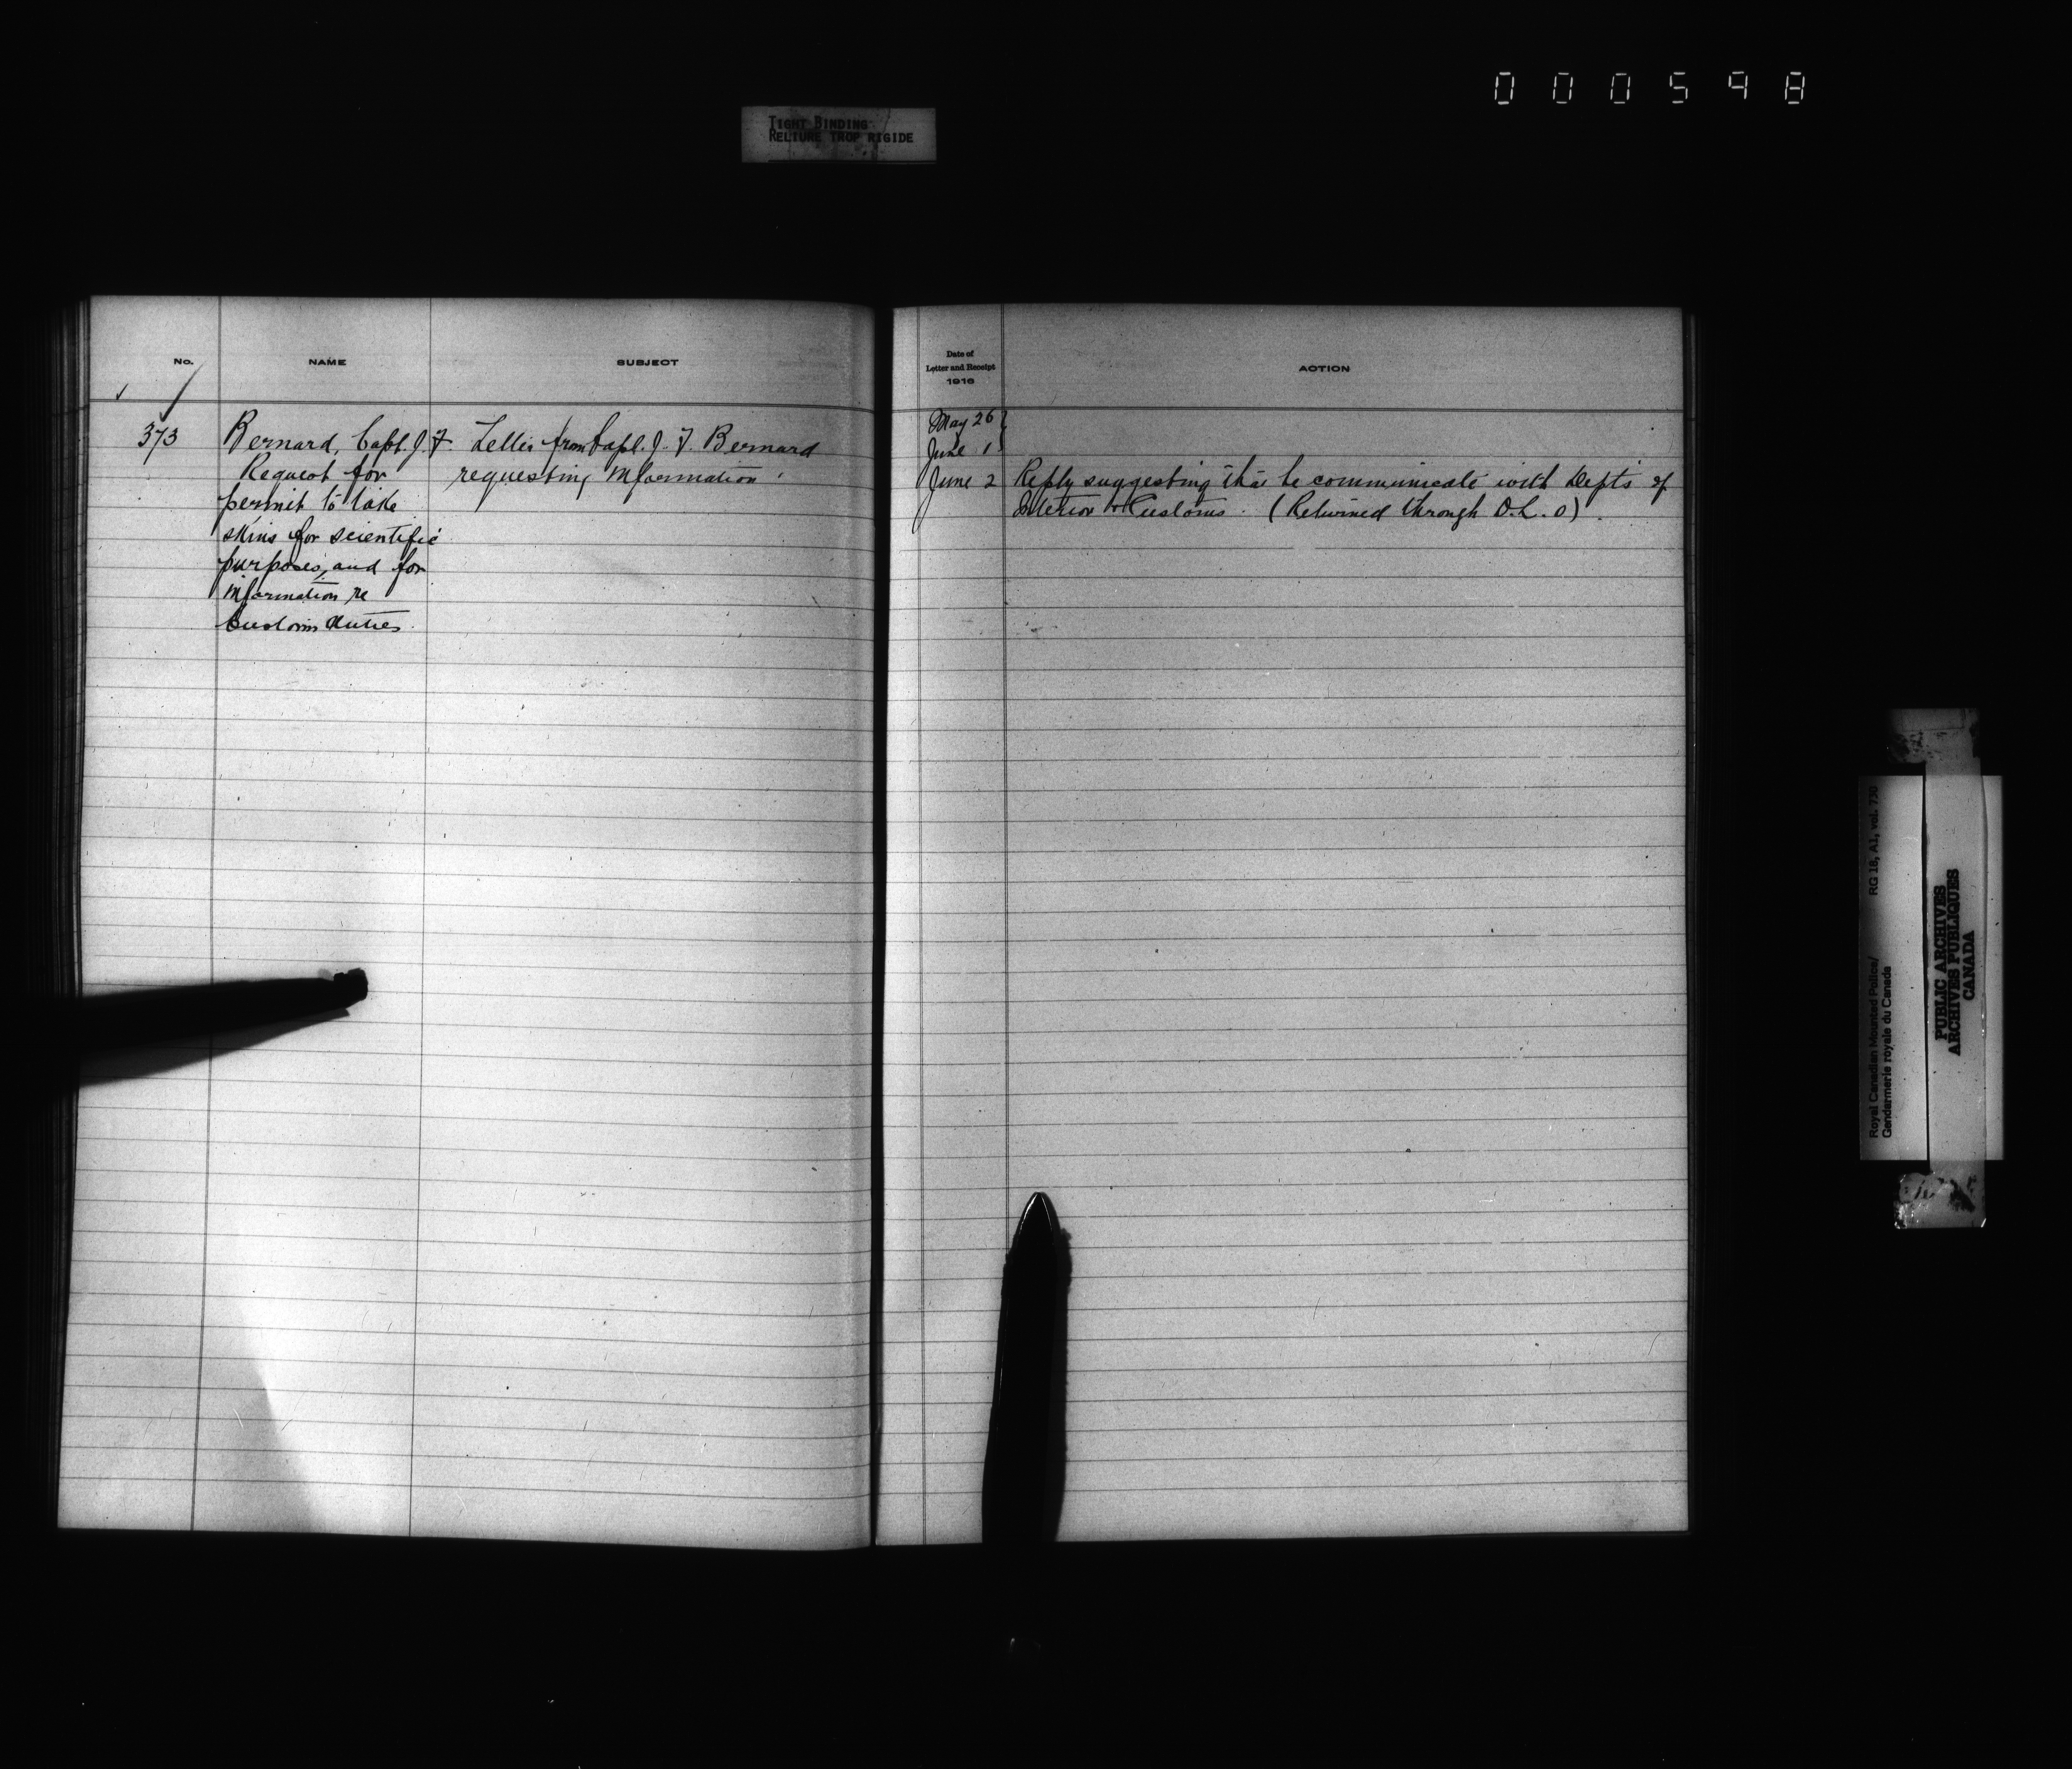 000598
TIGHT BINDING
RELIURE TROP RIGIDE
No.
NAME
SUBJECT
373
Bernard, Capt. J. F.
Request for
permit to take
skins for scientific
purposes, and for
information re
Customs duties.
Letter from Capt. J. F. Bernard
requesting information.
Date of
Letter and Receipt
1916
ACTION
May 26
June 1
June 2
Reply suggesting that he communicate with Depts of
Interior & Customs. (Returned through D.L.O)
Royal Canadian Mounted Police/
Gendarmerie royale du Canada
RG 18, A1, vol. 730
PUBLIC ARCHIVES
ARCHIVES PUBLIQUES
CANADA